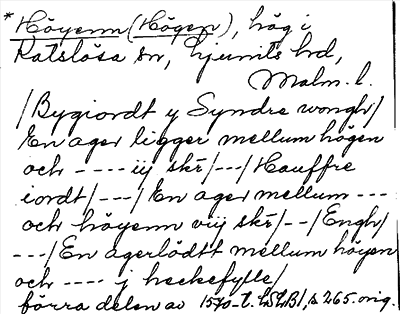 * Höyenn (Högen), hög i
Katslösa sn, Ljunits hrd,
Malm. l.
/Bygiordt y Syndre wongh/
En ager ligger mellum högen
och ---- iij skr/---/Hauffre
iordt/---/En ager mellum ---
och höyenn viij skr/--/Engh/
---/En agerlödtt mellum höyen
och ---- j heckefylle/
förra delen av 1570-t. LSLB1, s 265. orig.